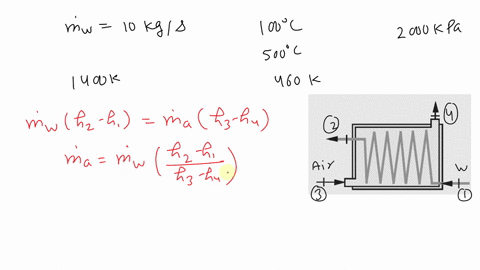 ṁw = 10 kg/s 100°C 2000 kPa
500°C
1400K 460 K
ṁw (h2-h1) = ṁa (h3-h4)
ṁa = ṁw ( h2-h1 / h3-h4 )
4
2
Air W
3 1